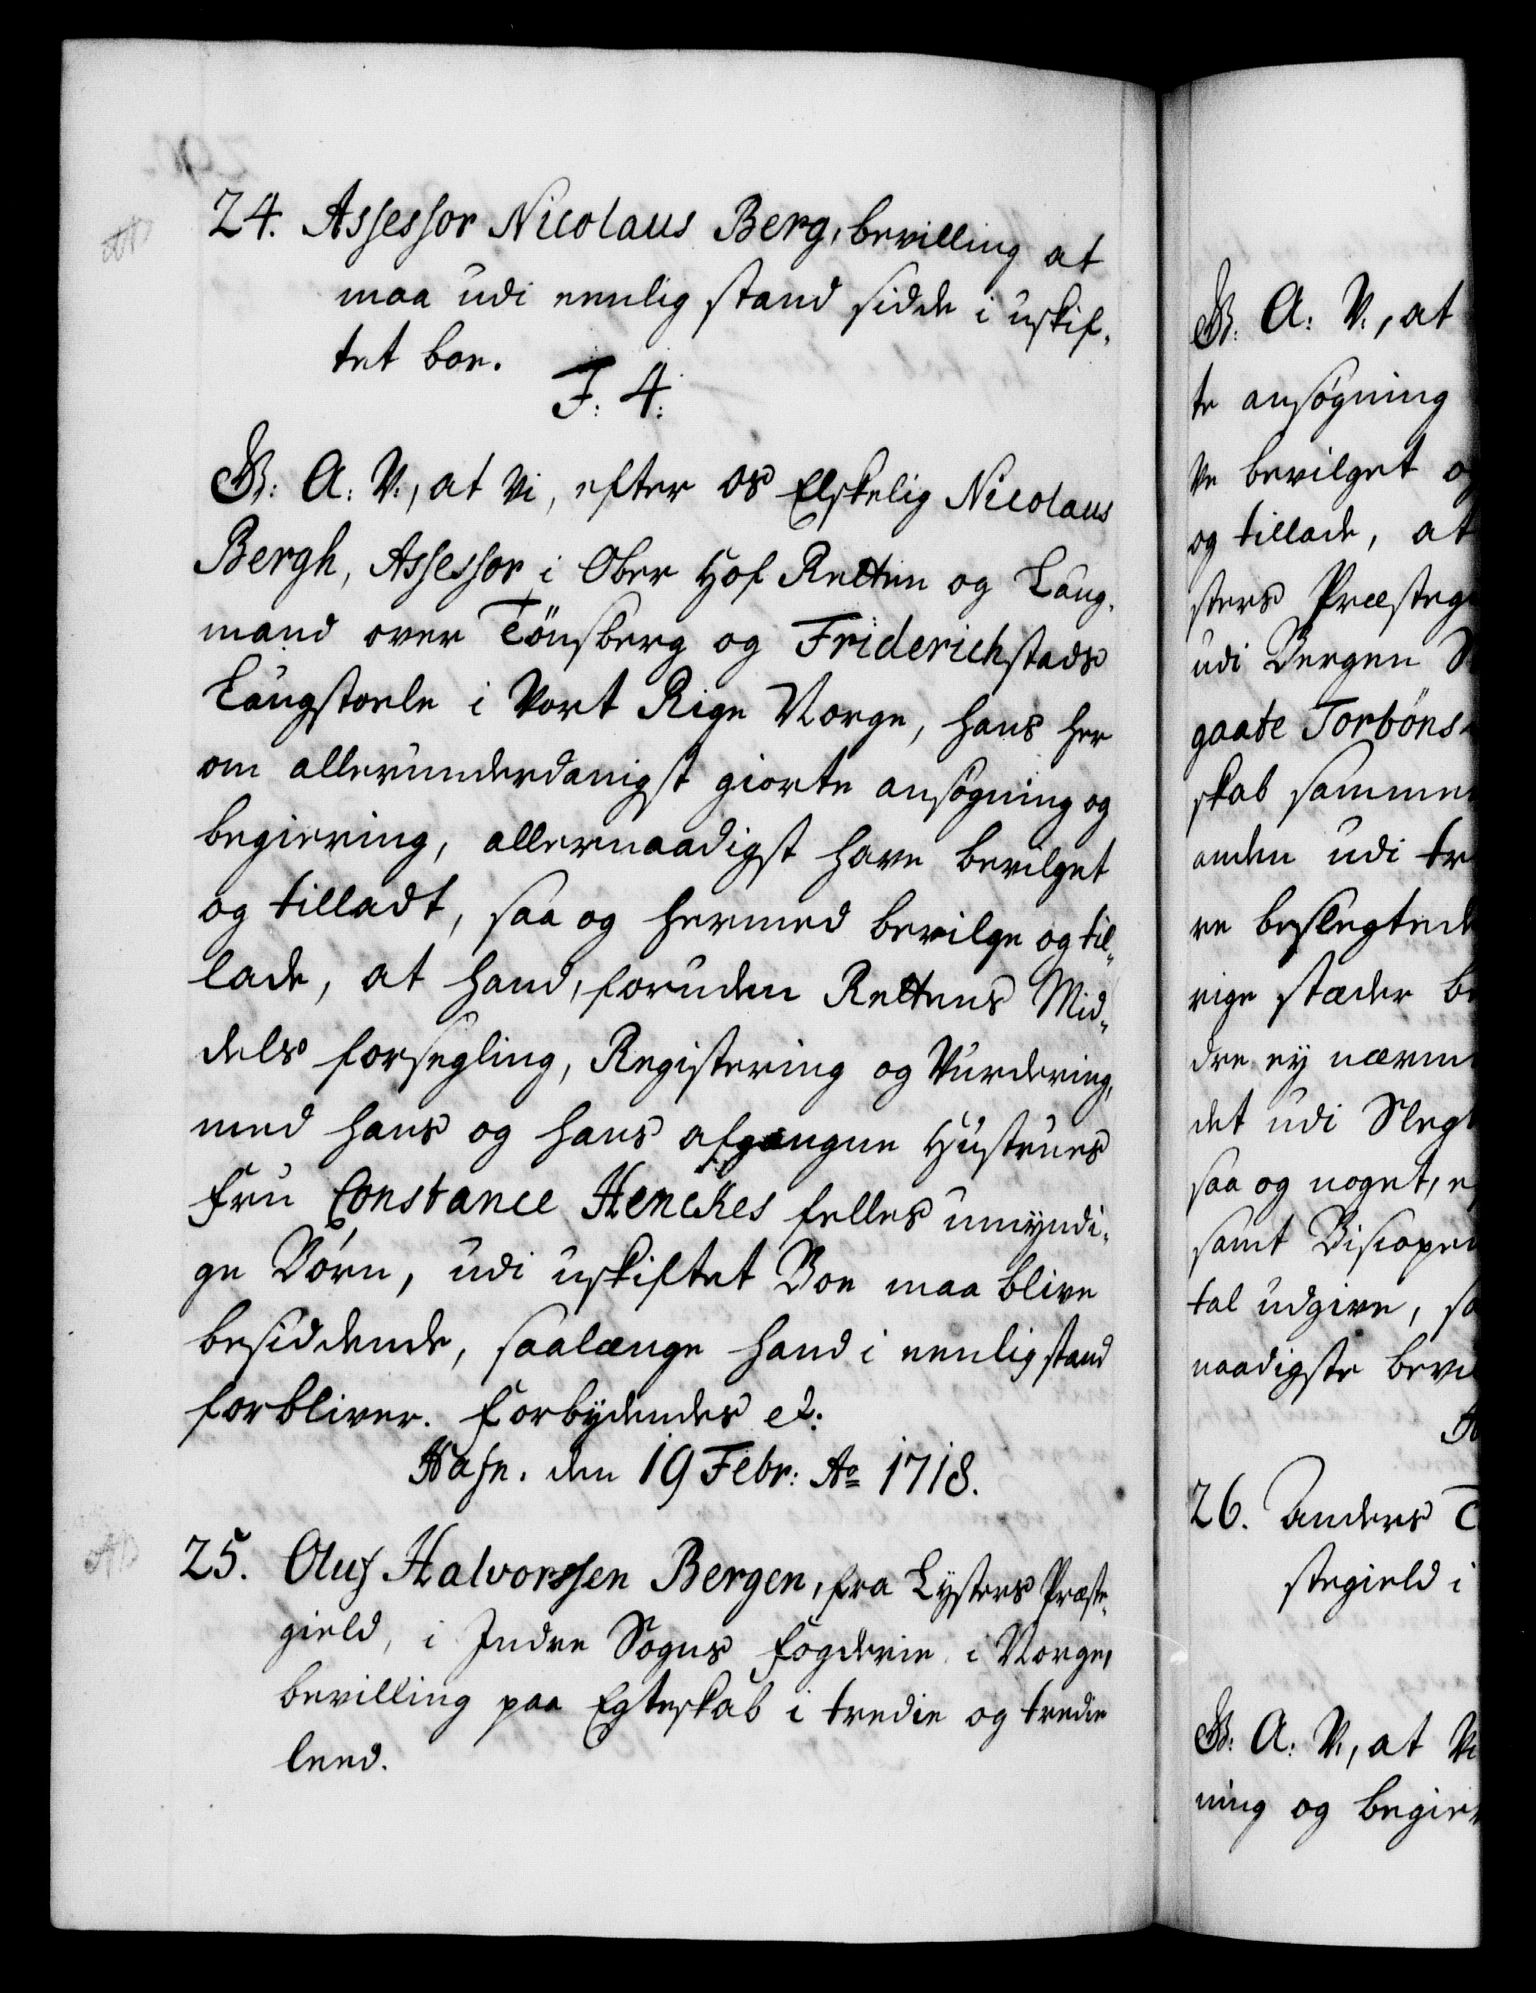 24. Assessor Nicolaus Berg, bevilling at
maa udi eenlig stand sidde i uskif-
tet boe.
F. 4.
G: A: V:, at Vi, efter os Elskelig Nicolaus
Bergh, Assessor i Ober Hof Retten og Laug-
mand over Tönsberg og Friderichstads
Laugstoele i Vort Rige Norge, hans her
om allerunderdanigst giorte ansøgning og
begiering, allernaadigst have bevilget
og tilladt, saa og hermed bevilge og til-
lade, at hand, foruden Rettens Mid-
dels forsegling, Registering og Vurdering,
med hans og hans afgangne Hustrues
Fru Constance Henckes felles umyndi-
ge Børn, udi uskiftet Boe maa blive
besiddende, saalænge hand i eenlig stand
forbliver. Forbydendes et:
Hafn. den 19 Febr: Ao 1718.
25. Oluf Halvorssen Bergen, fra Lysters Præste-
gield, i Indre Sogns Fogderie i Norge,
bevilling paa Egteskab i tredie og tredie
leed.
G: A: V:, at
te ansøgning
ve bevilget o
og tillade, at
sters Præsteg
udi Bergen
gaate Torböns
skab sammen
anden udi tr
re beslegtede
rige stæder be
dre ey nærm
det udi Slegt
saa og noget, e
samt Biscopen
tal udgive, sa
naadigste bevi
26. Anders T
stegield i
G: A: V:, at Vi
ning og begier